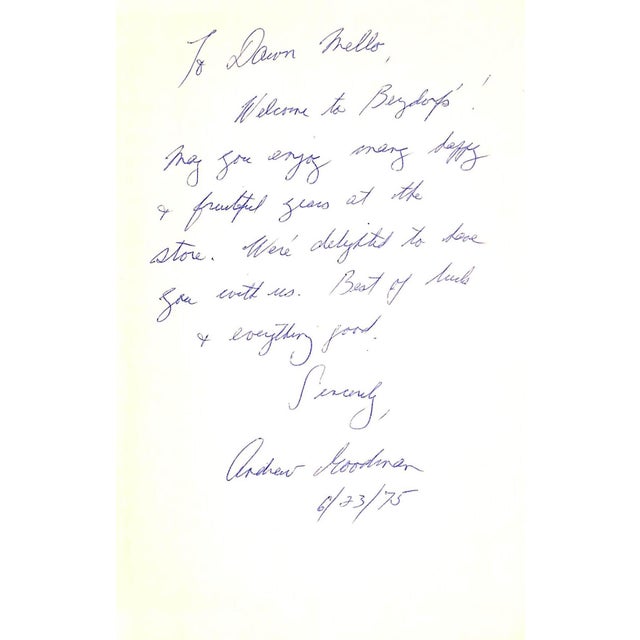 To Dawn Mello,
Welcome to Bergdorf's!
May you enjoy many happy
& fruitful years at the
store. We're delighted to have
you with us. Best of luck
& everything good.
Sincerely,
Andrew Goodman
6/23/75